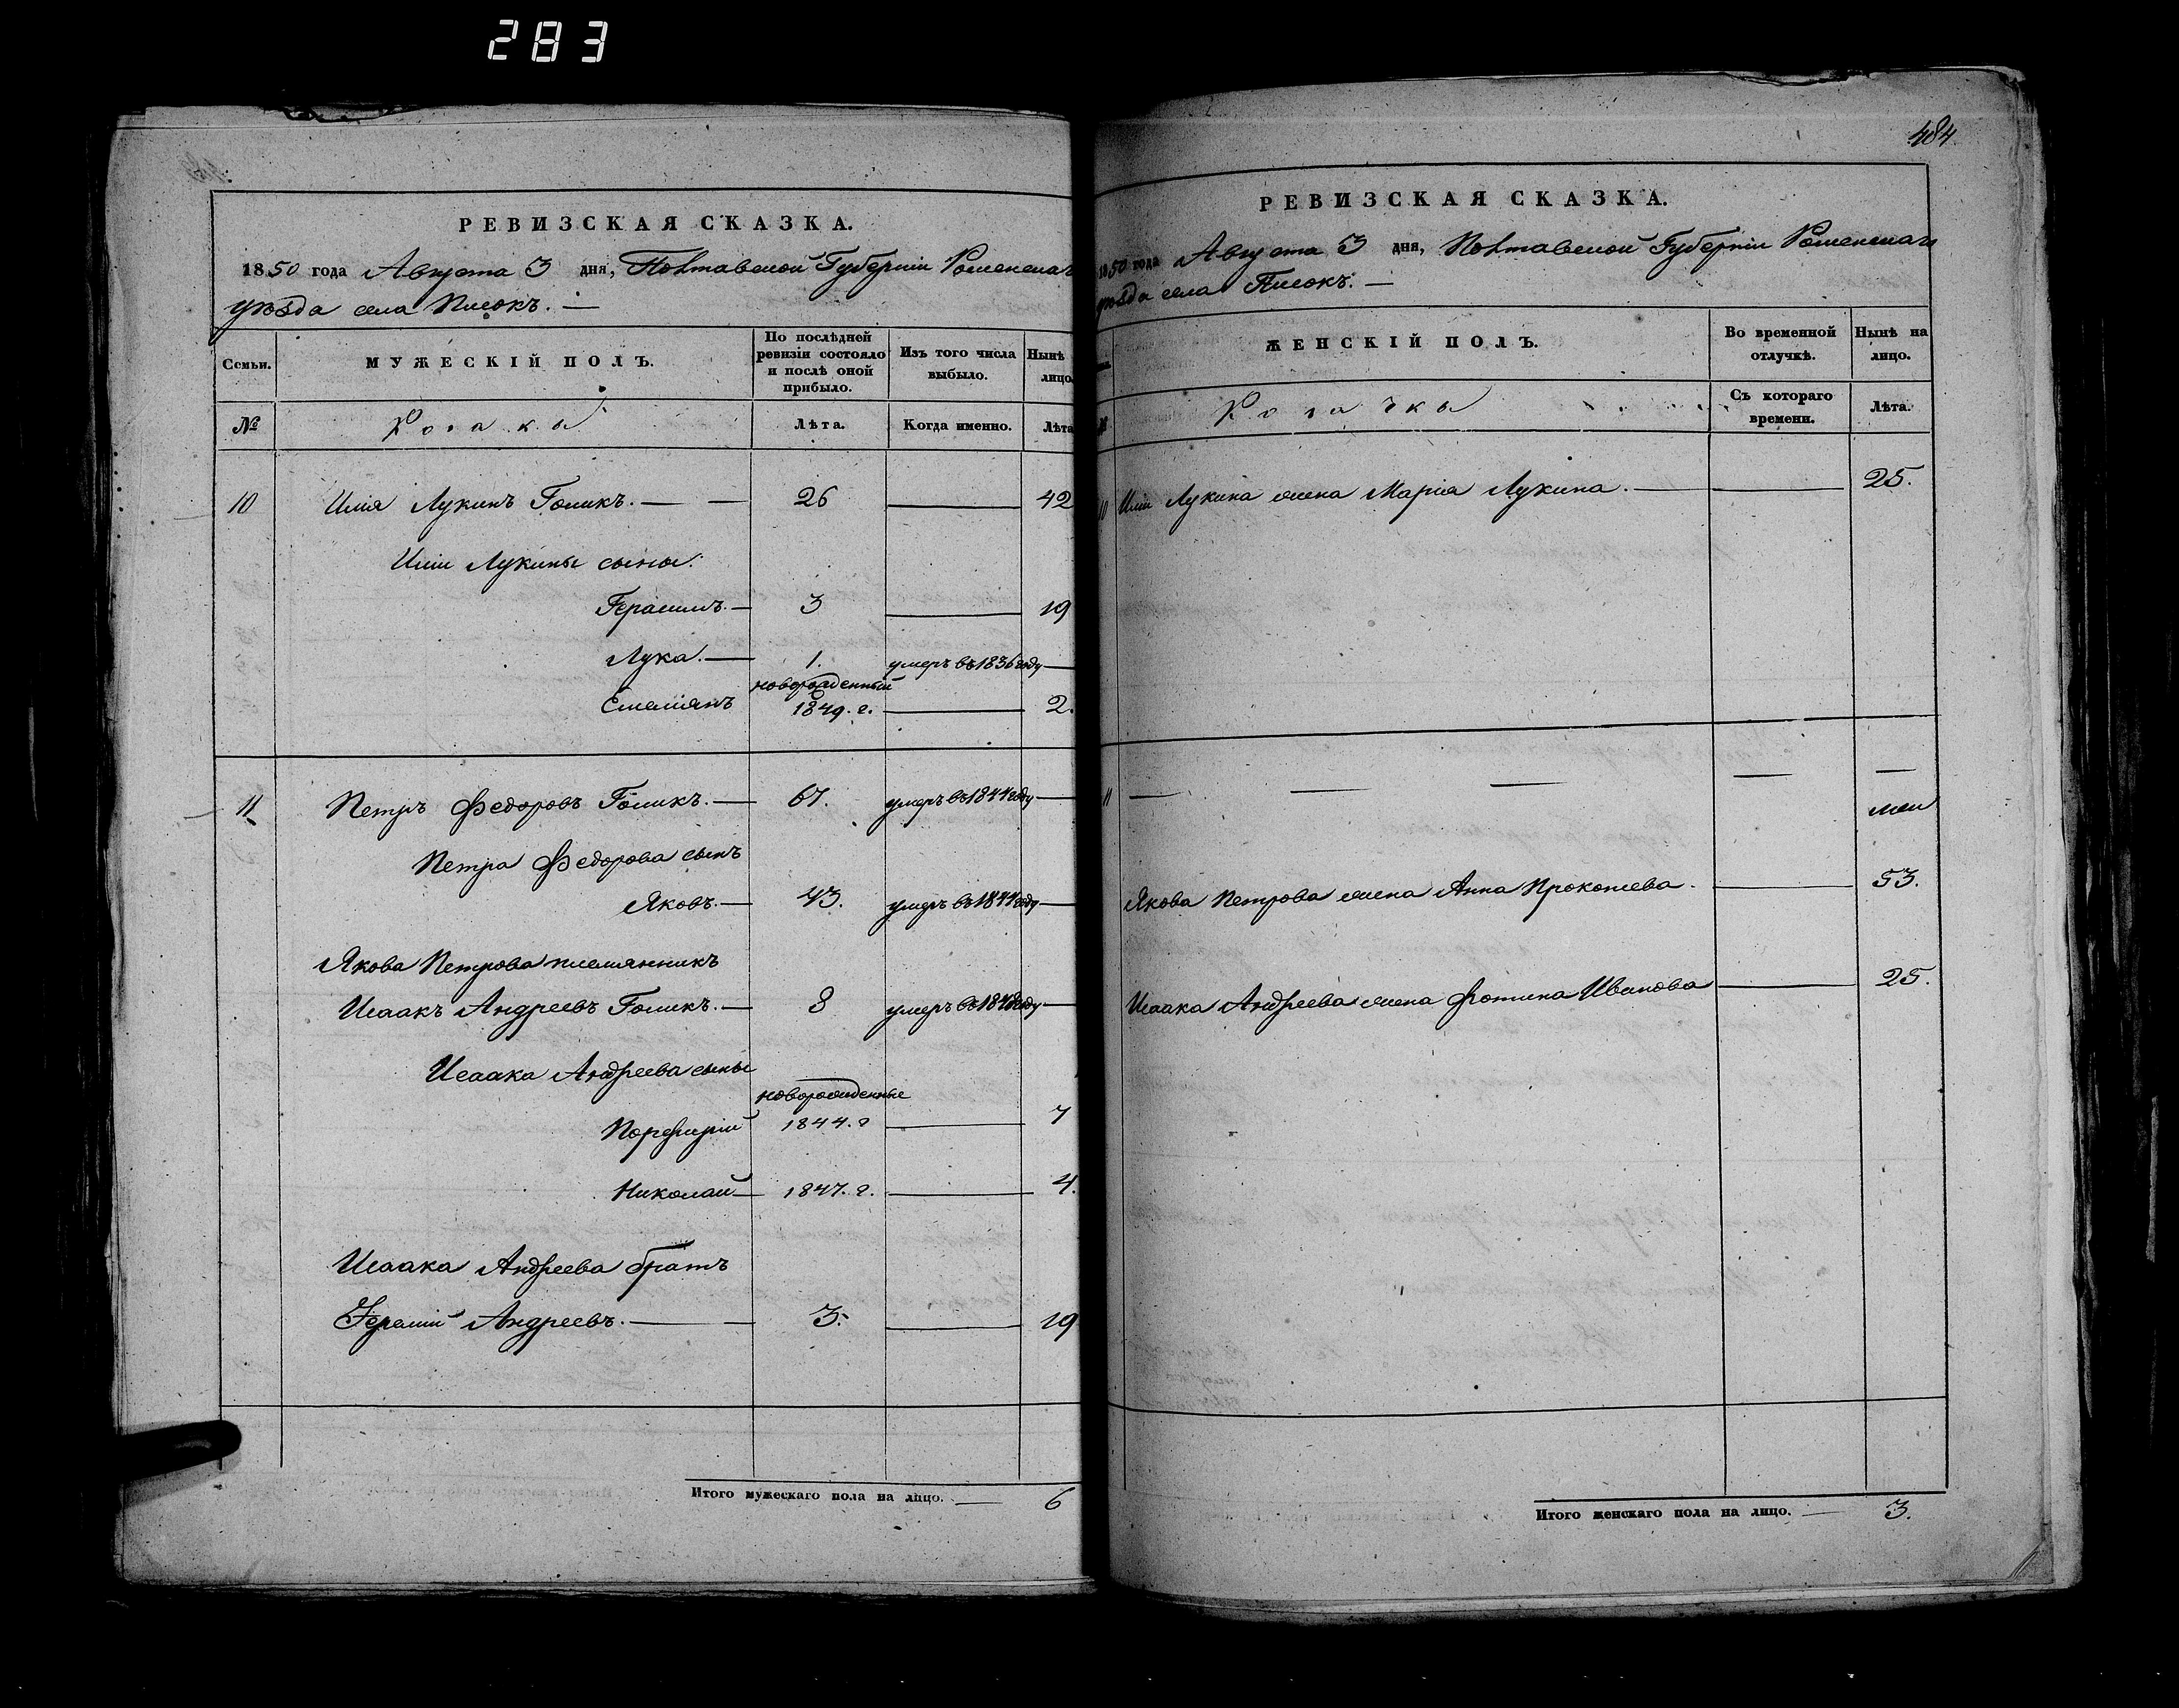 283
РЕВИЗСКАЯ СКАЗКА.
1850 года Августа 3 дня, Полтавской Губерніи Роменскаго
уѣзда села Писокъ. —
Семьи. МУЖЕСКІЙ ПОЛЪ. По послѣдней ревизіи состояло и послѣ оной прибыло. Изъ того числа выбыло. Нынѣ лицо.
№ Козаки Лѣта. Когда именно. Лѣта
10 Илія Лукинъ Голикъ. — — 26 — 42
Иліи Лукины сыны:
Герасимъ. — 3 — 19
Лука. — 1. умеръ въ 1836 году —
новорожденный
Емеліянъ 1849. г. — 2.
11 Петръ Федоровъ Голикъ. — 67. умеръ въ 1844 году —
Петра Федорова сынъ
Яковъ. — 43. умеръ въ 1844 году —
Якова Петрова племянникъ
Исаакъ Андреевъ Голикъ. — 8 умеръ въ 1848 году —
Исаака Андреева сыны
новорожденные
Порфирій 1844. г — 7
Николай — 1847. г. — 4.
Исаака Андреева братъ
Андреевъ. — 3. — 19
Итого мужескаго пола на лицо. — 6
484
РЕВИЗСКАЯ СКАЗКА.
1850 года Августа 3 дня, Полтавской Губерніи Роменскаго
уѣзда села Писокъ. —
ЖЕНСКІЙ ПОЛЪ. Во временной отлучкѣ. Нынѣ на лицо.
№ Козачки Съ котораго времени. Лѣта.
10 Иліи Лукина жена Марія Лукина. — — 25.
11 — — — — —
Якова Петрова жена Анна Прокопіева. — 53.
Исаака Андреева жена Фотина Иванова — 25.
Итого женскаго пола на лицо. — 3.